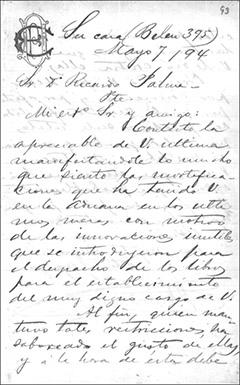 93
Su casa (Belen 395)
Mayo 7/94
Sr. D. Ricardo Palma
Pte
Mi esto Sr. y amigo:
Contesto la
apreciable de V. última
manifestandole lo mucho
que siento las mortifica
ciones que ha tenido V.
en la Aduana en los ulti
mos meses con motivo
de las innovaciones inutiles
que se introdujeron para
el despacho de los libros
para el establecimiento
del muy digno cargo de V.
Al fin, quien man
tuvo tales restricciones, ha
saboreado el gusto de ellas,
y á la hora de esta debe